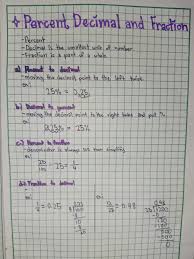 Percent Decimal and Fraction
- Percent
- Decimal is the smallest unit of number
- Fraction is a part of a whole
a) Percent to decimal
- moving the decimal point to the left twice
25% = 0.25
b) Decimal to percent
- moving the decimal point to the right twice and put %
= 25%
c) Percent to fraction
- denominator is always 100 then simplify
25/100 = 1/4
d) Fraction to decimal
= 0.25
12/25 = 0.48